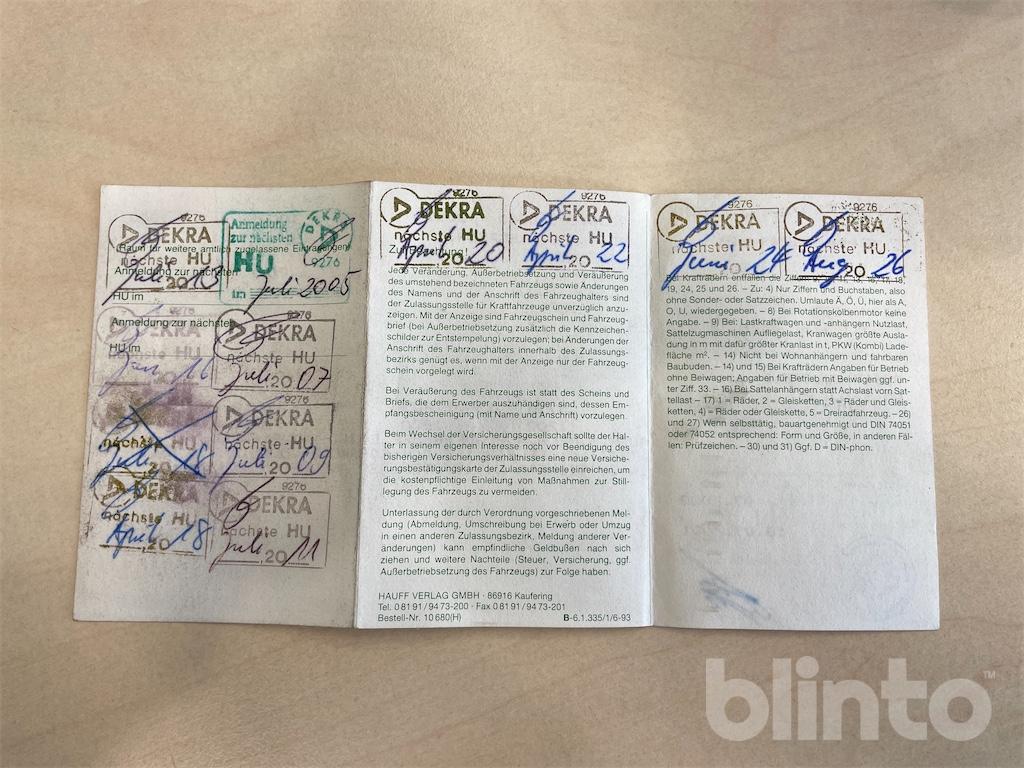 9276
DEKRA
nächste HU
Juli, 2013
(Raum für weitere amtlich zugelassene Eintragungen)
Anmeldung zur nächsten
HU im
Anmeldung
zur nächsten
HU
im Juli 2005
DEKRA
9276
Anmeldung zur nächsten
HU im
nächste HU
16
9276
DEKRA
nächste HU
Juli, 2007
nächste HU
Juli, 2018
9276
DEKRA
nächste HU
Juli, 2009
9276
DEKRA
nächste HU
April, 2018
9276
DEKRA
nächste HU
Juli, 2011
9276
DEKRA
nächste HU
April, 2020
9276
DEKRA
nächste HU
April, 2022
Zur Beachtung!
Jede Veränderung, Außerbetriebsetzung und Veräußerung
des umstehend bezeichneten Fahrzeugs sowie Änderungen
des Namens und der Anschrift des Fahrzeughalters sind
der Zulassungsstelle für Kraftfahrzeuge unverzüglich anzu-
zeigen. Mit der Anzeige sind Fahrzeugschein und Fahrzeug-
brief (bei Außerbetriebsetzung zusätzlich die Kennzeichen-
schilder zur Entstempelung) vorzulegen; bei Änderungen der
Anschrift des Fahrzeughalters innerhalb des Zulassungs-
bezirks genügt es, wenn mit der Anzeige nur der Fahrzeug-
schein vorgelegt wird.
Bei Veräußerung des Fahrzeugs ist statt des Scheins und
Briefs, die dem Erwerber auszuhändigen sind, dessen Emp-
fangsbescheinigung (mit Name und Anschrift) vorzulegen.
Beim Wechsel der Versicherungsgesellschaft sollte der Hal-
ter in seinem eigenen Interesse noch vor Beendigung des
bisherigen Versicherungsverhältnisses eine neue Versiche-
rungsbestätigungskarte der Zulassungsstelle einreichen, um
die kostenpflichtige Einleitung von Maßnahmen zur Still-
legung des Fahrzeugs zu vermeiden.
Unterlassung der durch Verordnung vorgeschriebenen Mel-
dung (Abmeldung, Umschreibung bei Erwerb oder Umzug
in einen anderen Zulassungsbezirk, Meldung anderer Ver-
änderungen) kann empfindliche Geldbußen nach sich
ziehen und weitere Nachteile (Steuer, Versicherung, ggf.
Außerbetriebsetzung des Fahrzeugs) zur Folge haben.
HAUFF VERLAG GMBH · 86916 Kaufering
Tel. 0 81 91 / 94 73-200 · Fax 0 81 91 / 94 73-201
Bestell-Nr. 10 680(H)
B-6.1.335/1/6-93
9276
DEKRA
nächste HU
Juni 2024
9276
DEKRA
nächste HU
Aug. 2026
Bei Krafträdern entfallen die Ziffern 18,
19, 24, 25 und 26. – Zu: 4) Nur Ziffern und Buchstaben, also
ohne Sonder- oder Satzzeichen. Umlaute Ä, Ö, Ü, hier als A,
O, U, wiedergegeben. – 8) Bei Rotationskolbenmotor keine
Angabe. – 9) Bei: Lastkraftwagen und -anhängern Nutzlast,
Sattelzugmaschinen Aufliegelast, Kranwagen größte Ausla-
dung in m mit dafür größter Kranlast in t, PKW (Kombi) Lade-
fläche m². – 14) Nicht bei Wohnanhängern und fahrbaren
Baubuden. – 14) und 15) Bei Krafträdern Angaben für Betrieb
ohne Beiwagen; Angaben für Betrieb mit Beiwagen ggf. un-
ter Ziff. 33. – 16) Bei Sattelanhängern statt Achslast vom Sat-
tellast – 17) 1 = Räder, 2 = Gleisketten, 3 = Räder und Gleis-
ketten, 4) = Räder oder Gleiskette, 5 = Dreiradfahrzeug. – 26)
und 27) Wenn selbsttätig, bauartgenehmigt und DIN 74051
oder 74052 entsprechend: Form und Größe, in anderen Fäl-
len: Prüfzeichen. – 30) und 31) Ggf. D = DIN-phon.
blinto™